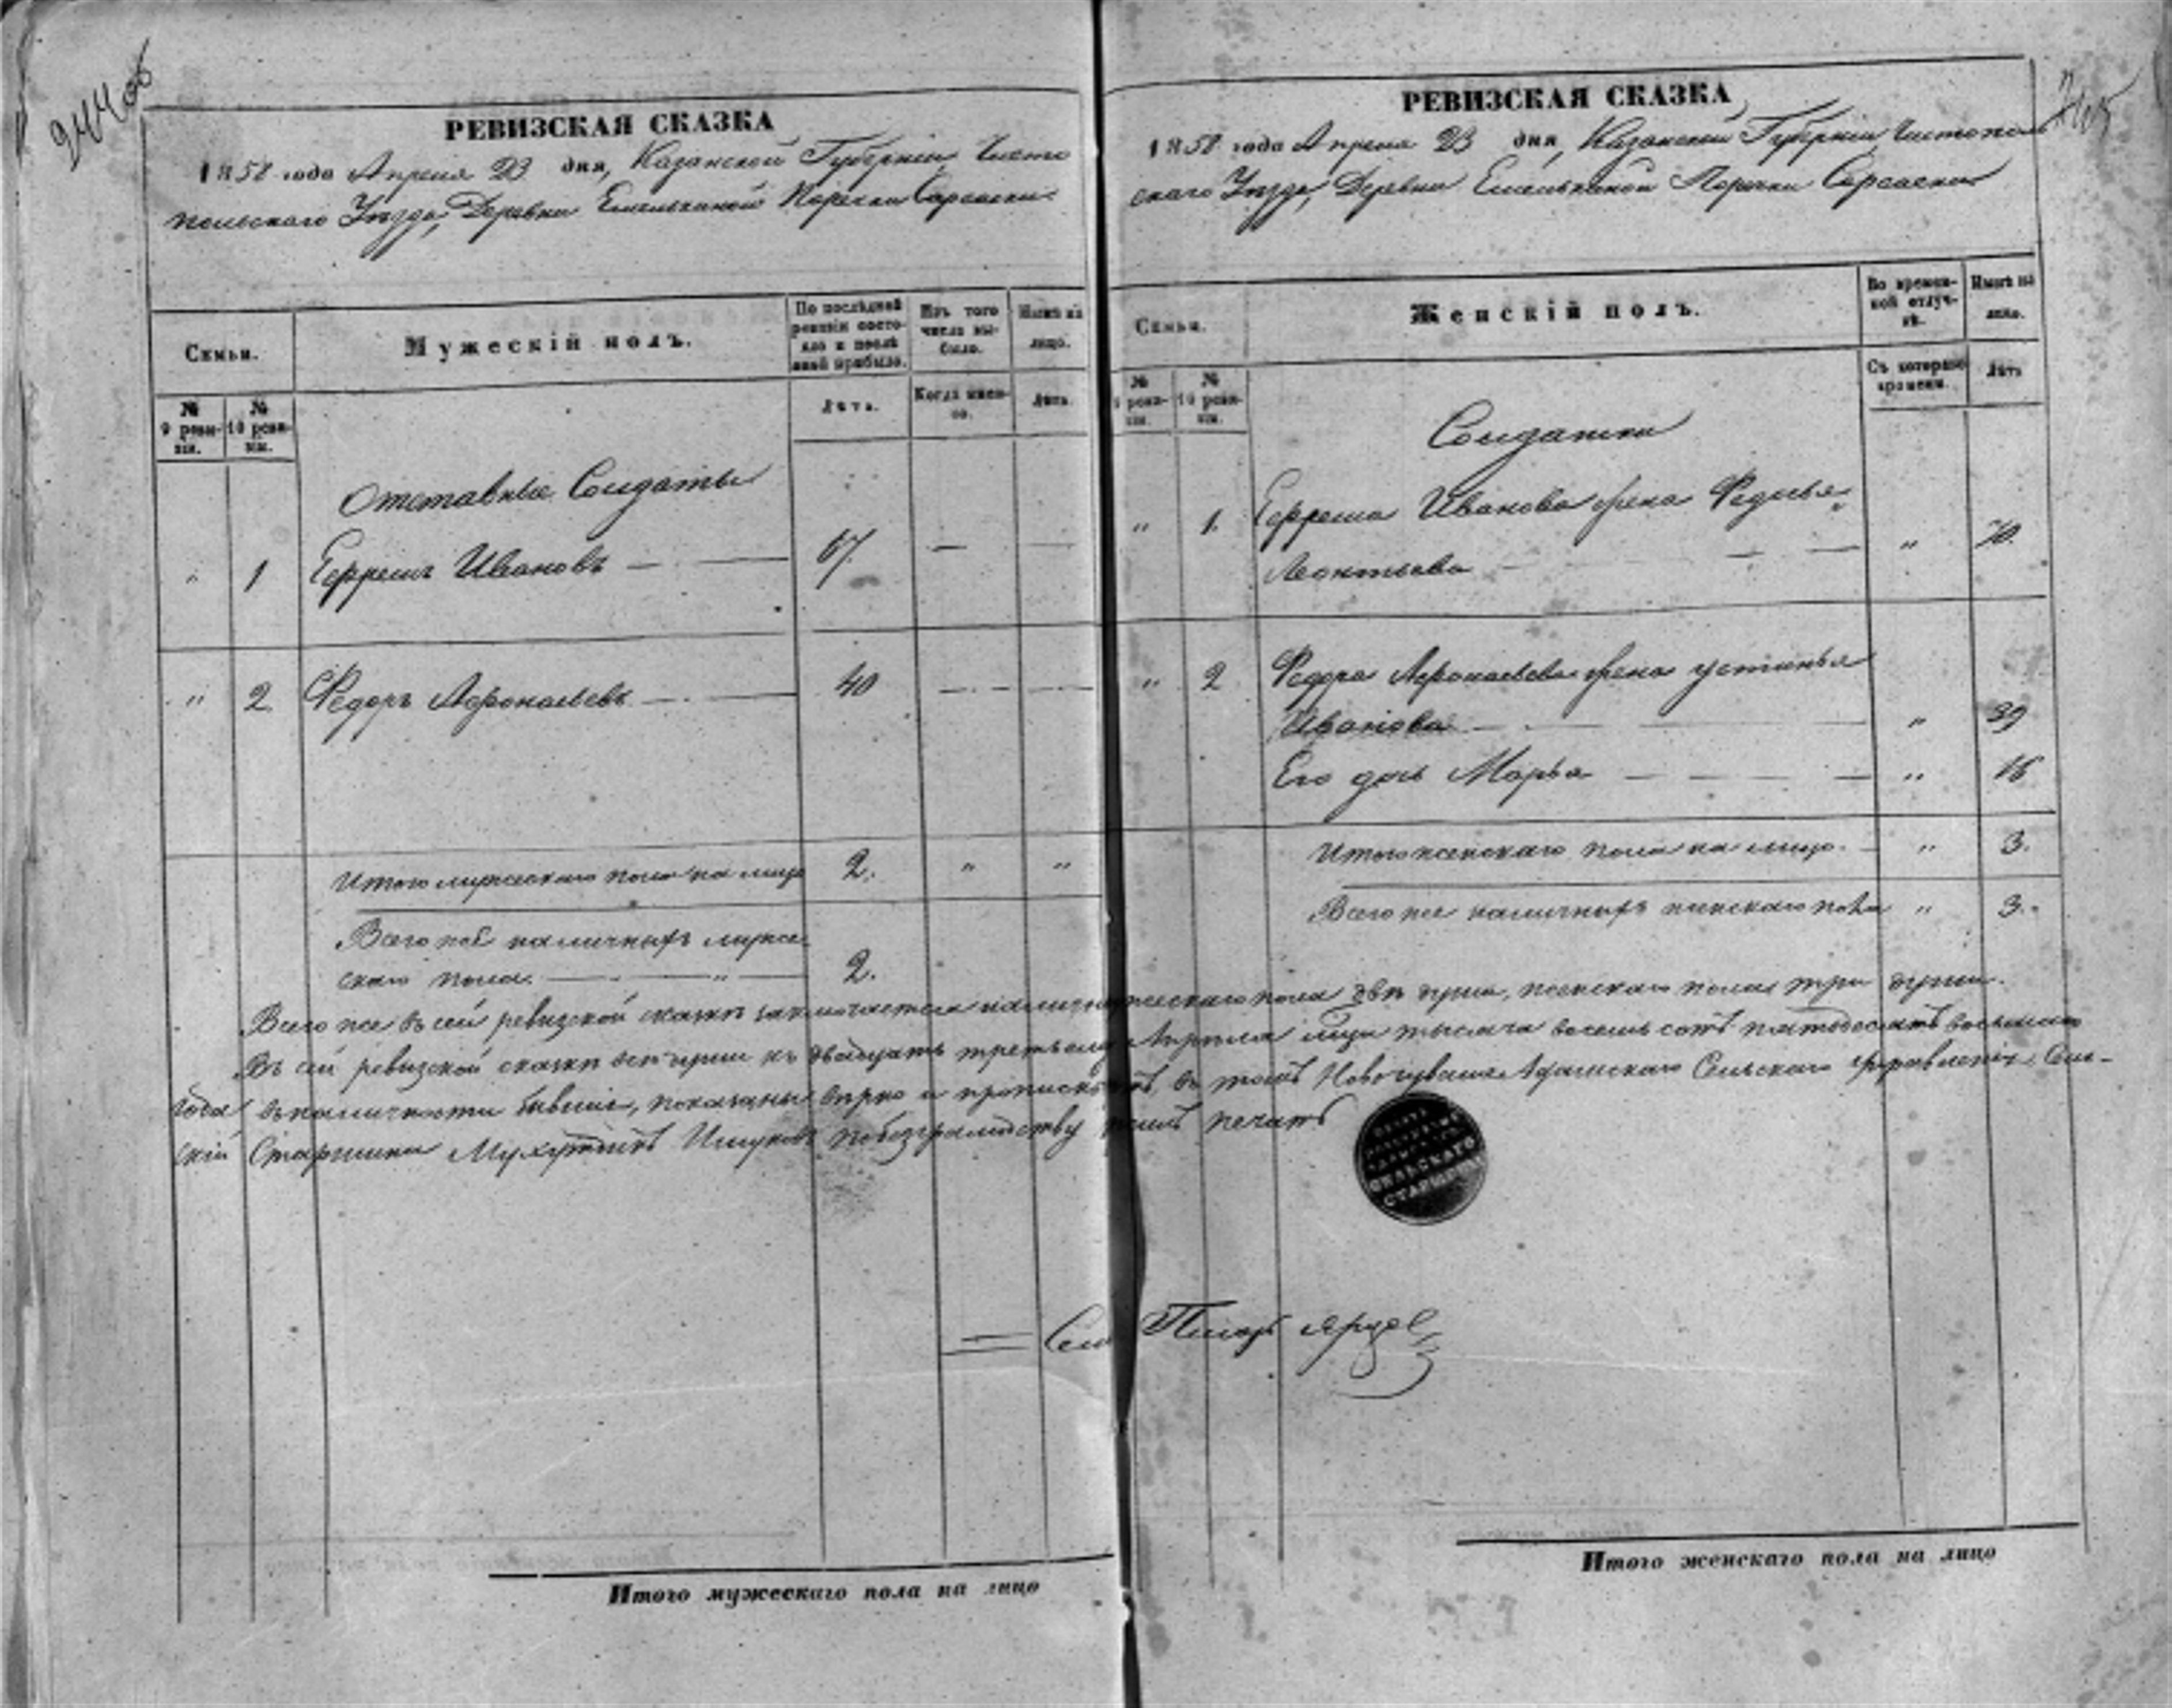 244об
РЕВИЗСКАЯ СКАЗКА
1858 года Апреля 23 дня, Казанской Губерніи Чисто
польскаго Уѣзда, Деревни Емелькиной Поречки Сарсаски
Семьи.
Мужескій полъ.
По послѣдней ревизіи состояло и послѣ оной прибыло.
Изъ того числа выбыло.
Нынѣ на лицо.
№ 9 ревизіи.
№ 10 ревизіи.
Лѣта.
Когда именно.
Лѣта.
Отставные Солдаты
" 1 Ефремъ Ивановъ — 67. — —
" 2 Федоръ Афонасьевъ — 40 — —
Итого мужескаго пола на лицо 2. " "
Всего же наличныхъ муже
скаго пола. — " — 2.
Итого мужескаго пола на лицо
245
РЕВИЗСКАЯ СКАЗКА
1858 года Апреля 23 дня, Казанской Губерніи Чистополь
скаго Уѣзда, Деревни Емелькиной Поречки Сарсаски
Семьи.
Женскій полъ.
Во временной отлучкѣ.
Нынѣ на лицо.
№ 9 ревизіи.
№ 10 ревизіи.
Съ котораго времени.
Лѣта
Солдатки
" 1. Ефрема Иванова жена Федосья
Леонтьева — " 70.
" 2 Федора Афонасьева жена Устинья
Иванова — " 39
Его дочь Марья — " 16
Итого женскаго пола на лицо. — " 3.
Всего же наличныхъ женскаго пола " 3.
Всего же въ сей ревизской сказкѣ заключается налично мужескаго пола двѣ души, женскаго пола три души.
Въ сей ревизской сказки все души къ двадцать третьему Апреля тысяча восемь сотъ пятьдесятъ восьмаго
года въ наличности бывшіе, показаны верно и въ томъ Сельскаго Управленія Сель-
скій Старшина по безграмотству печать
СЕЛЬСКАГО
СТАРШИНЫ
Сел Писарь
Итого женскаго пола на лицо